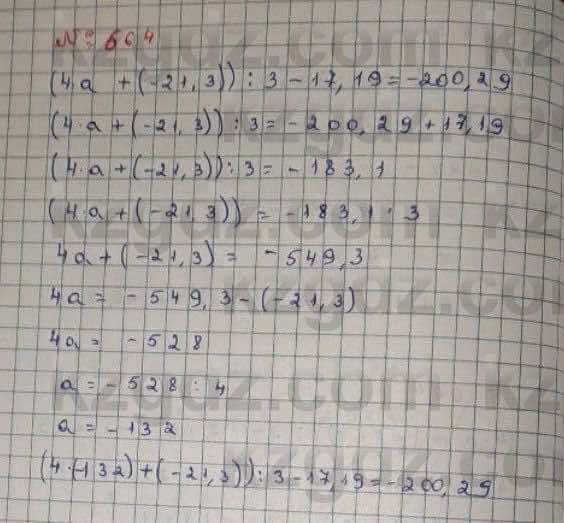 № 664
(4·a + (-21,3)) : 3 - 17,19 = -200,29
(4·a + (-21,3)) : 3 = -200,29 + 17,19
(4·a + (-21,3)) : 3 = -183,1
(4·a + (-21,3)) = -183,1 · 3
4a + (-21,3) = -549,3
4a = -549,3 - (-21,3)
4a = -528
a = -528 : 4
a = -132
(4·(-132) + (-21,3)) : 3 - 17,19 = -200,29
kzgdz.com